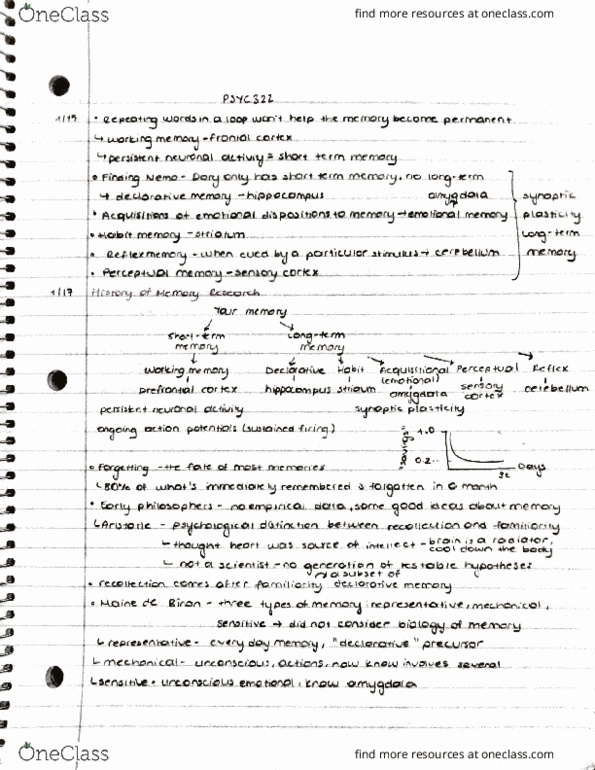 OneClass
find more resources at oneclass.com
PSYC322
1/15 • Repeating words in a loop won't help the memory become permanent
↳ working memory - frontal cortex
↳ persistent neuronal activity = short term memory
• Finding Nemo - Dory only has short term memory, no long-term
↳ declarative memory - hippocampus amygdala
• Acquisitions of emotional dispositions to memory → emotional memory
• Habit memory - striatum
• Reflex memory - when cued by a particular stimulus → cerebellum
• Perceptual memory - sensory cortex
synaptic
plasticity
long-term
memory
1/17 History of Memory Research
Your memory
Short-term memory
Long-term memory
working memory Declarative Habit Acquisitional (emotional) Perceptual Reflex
prefrontal cortex hippocampus striatum amygdala sensory cortex cerebellum
persistent neuronal activity synaptic plasticity
ongoing action potentials (sustained firing)
"savings" 1.0
0.2
Days
• Forgetting - the fate of most memories
↳ 80% of what's immediately remembered is forgotten in a month
• Early philosophers - no empirical data, some good ideas about memory
↳ Aristotle - psychological distinction between recollection and familiarity
↳ thought heart was source of intellect - brain is a radiator, cool down the body
↳ not a scientist - no generation of testable hypotheses
a subset of
• recollection comes after familiarity declarative memory
• Maine de Biran - three types of memory: representative, mechanical,
sensitive → did not consider biology of memory
↳ representative - every day memory, "declarative" precursor
↳ mechanical - unconscious, actions, now know involves several
↳ sensitive - unconscious emotional, know amygdala
OneClass
find more resources at oneclass.com